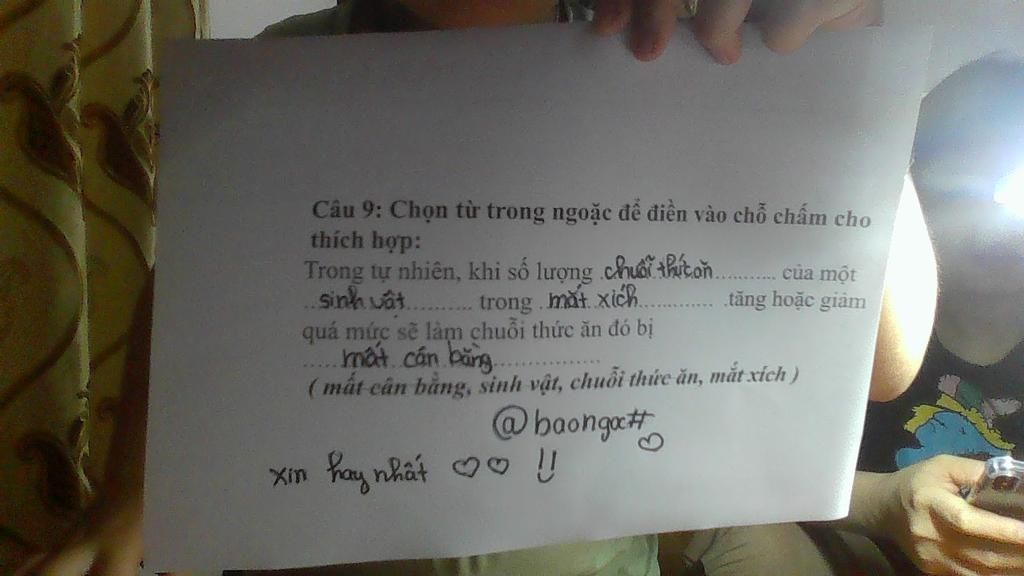 Câu 9: Chọn từ trong ngoặc để điền vào chỗ chấm cho
thích hợp:
Trong tự nhiên, khi số lượng chuỗi thức ăn........... của một
..sinh vật............ trong ..mắt xích............. .tăng hoặc giảm
quá mức sẽ làm chuỗi thức ăn đó bị
......mất cân bằng..................
( mất cân bằng, sinh vật, chuỗi thức ăn, mắt xích )
@baongoc#
xin hay nhất ♡♡ !!